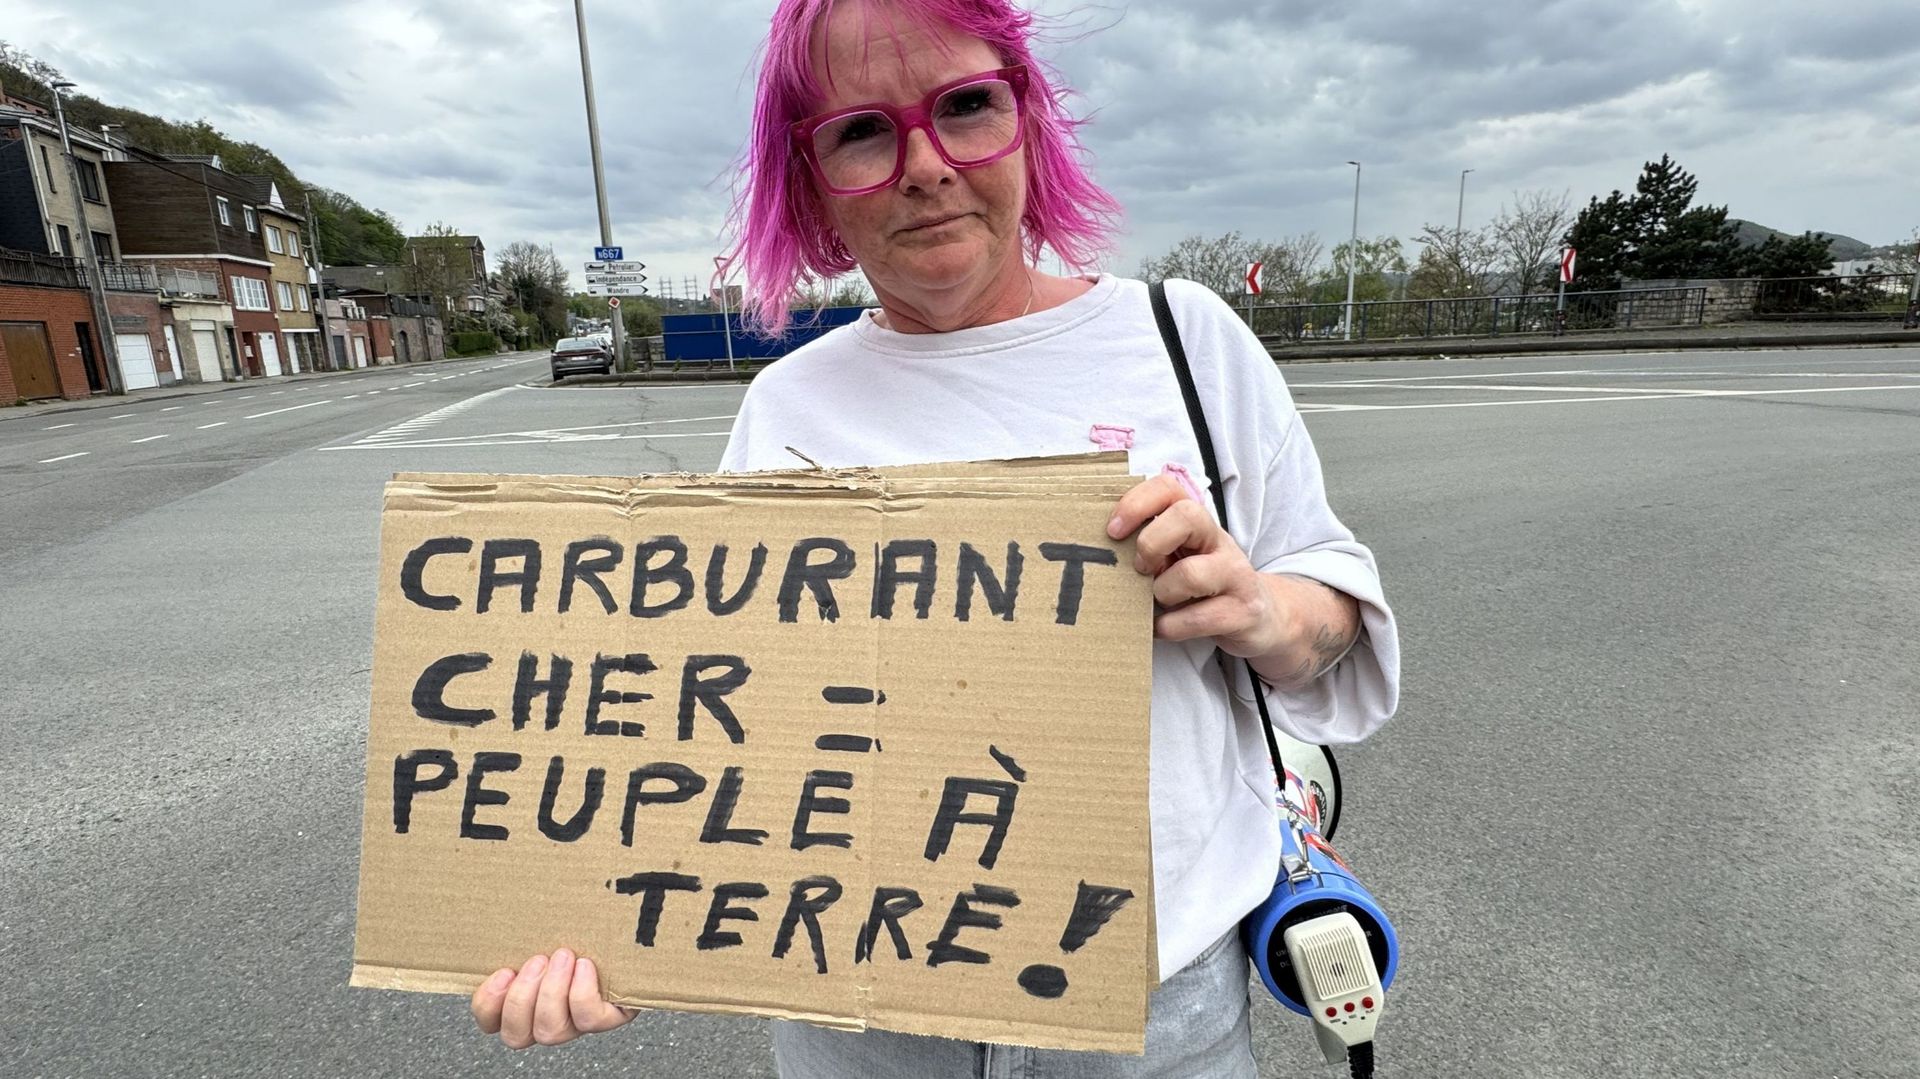 N667
Pétrolier
Indépendance
Wandre
CARBURANT
CHER =
PEUPLE À
TERRE!